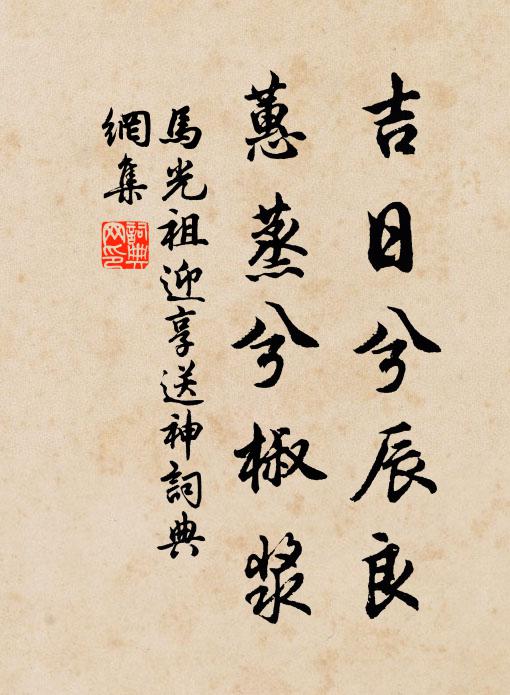 吉日兮辰良
蕙蒸兮椒漿
馬光祖迎享送神詞典
網集
詞典網印